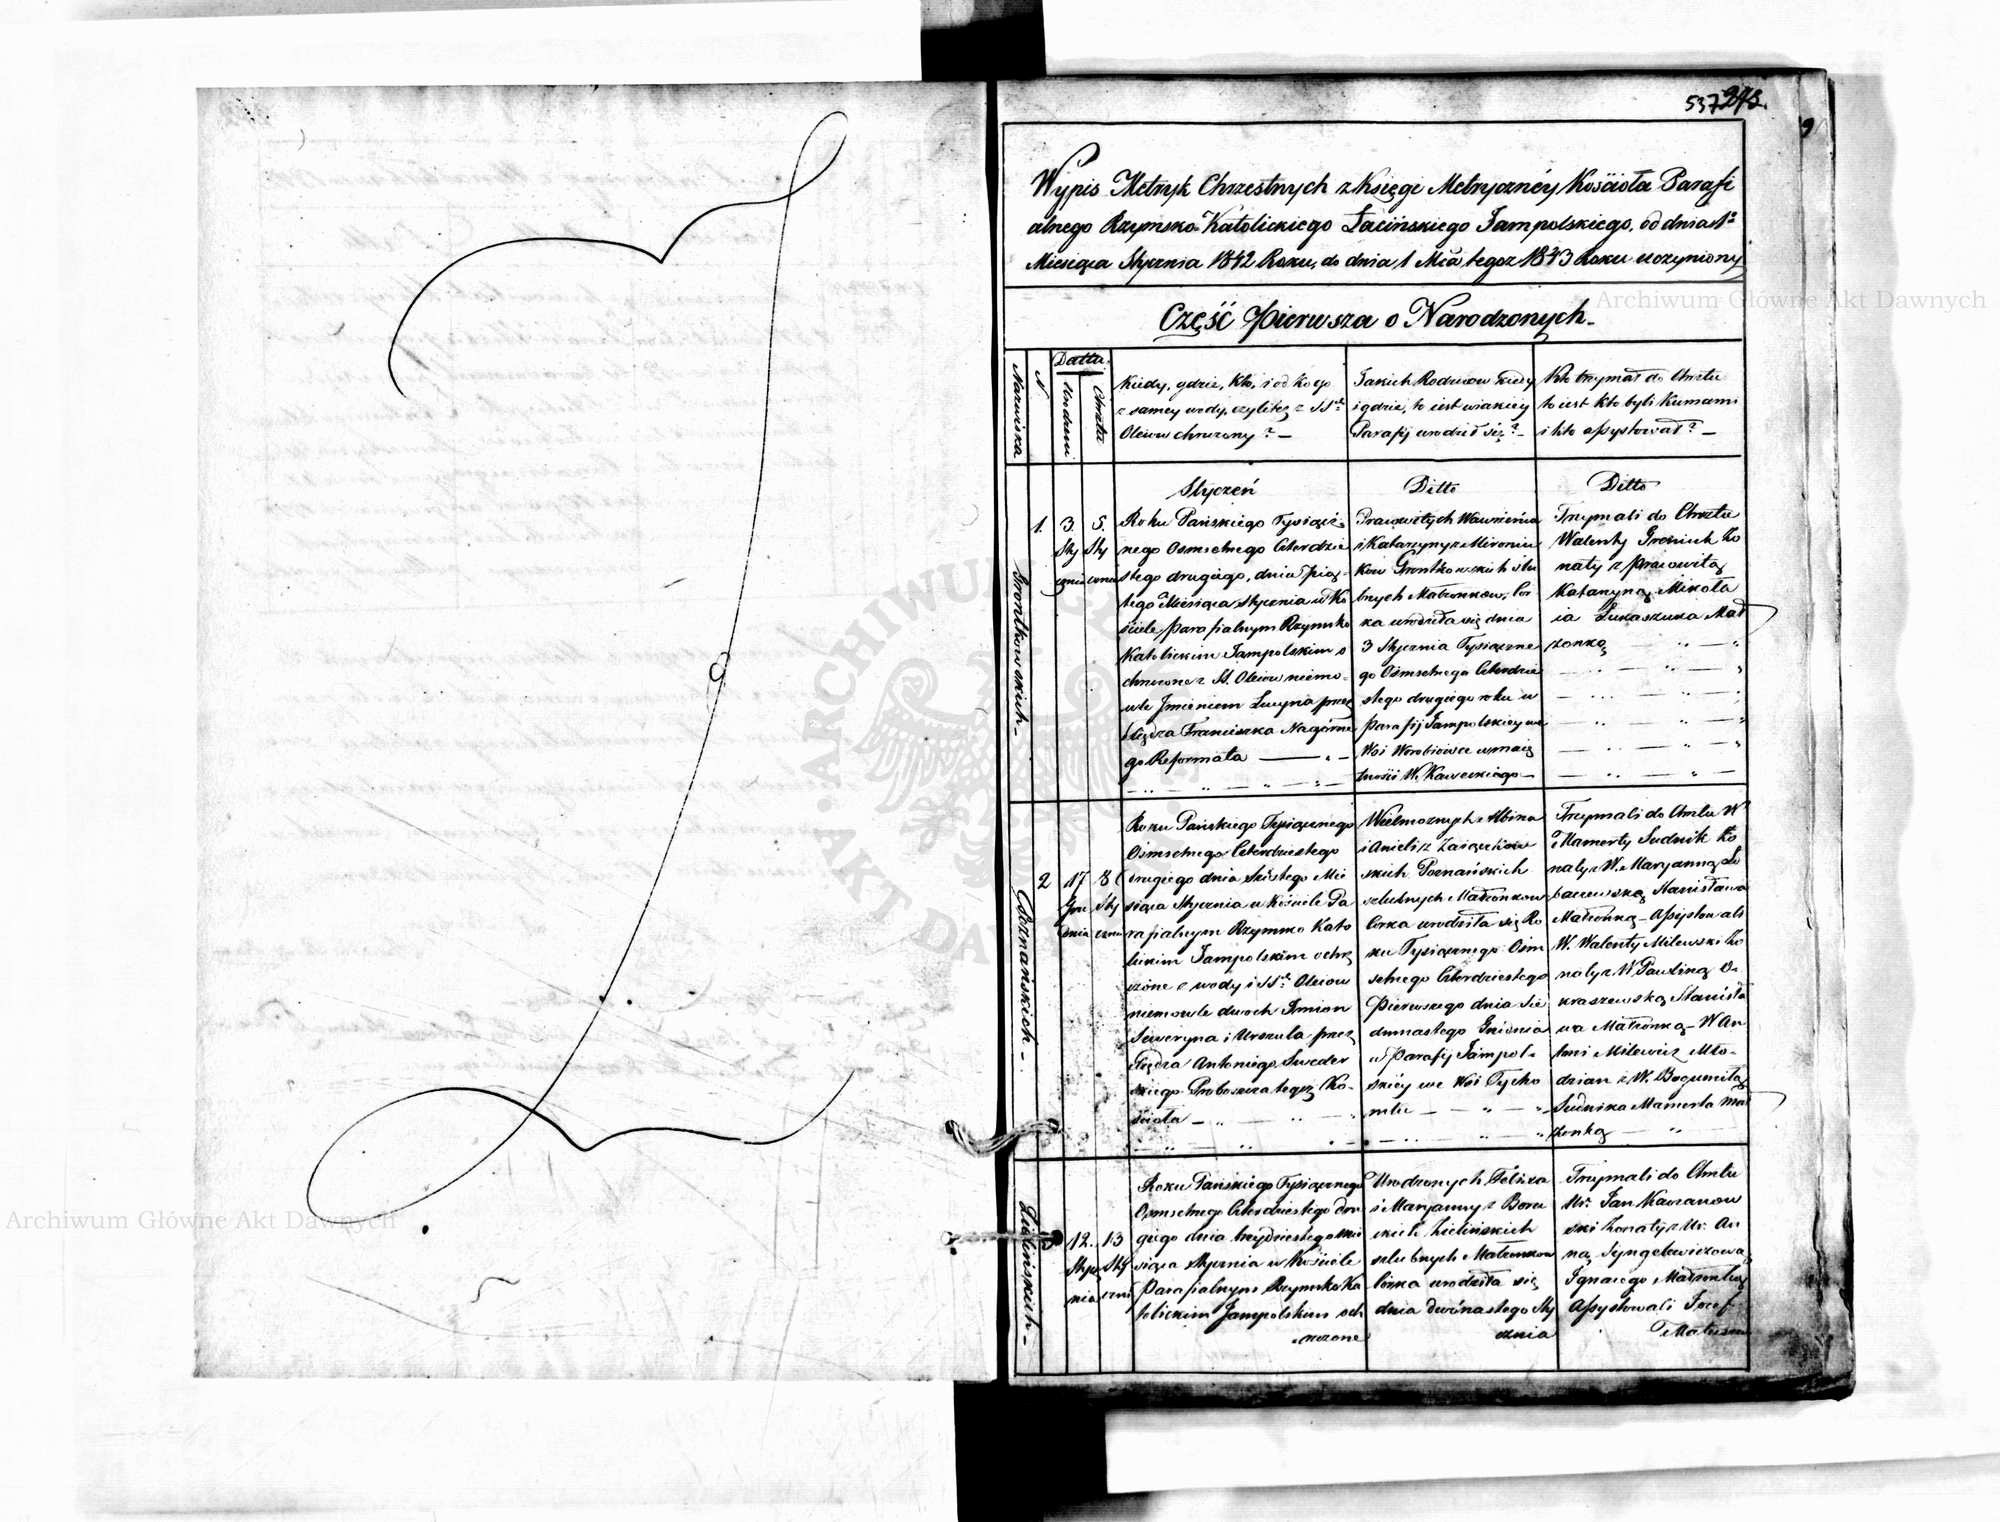 537 273.
9
Wypis Metryk Chrzestnych z Księgi Metrycznéy Kościoła Parafi
alnego Rzymsko-Katolickiego Łacińskiego Jampolskiego, od dnia 1º
Miesiąca Stycznia 1842 Roku, do dnia 1 Mca tegoż 1843 Roku uczyniony
Część Pierwsza o Narodzonych.
Nazwiska
N
Datta
Urodzeni
Chrztu
Kiedy, gdzie, kto, i od kogo
z samey wody, czyli też z SSch
Oleiow chrzczony? —
Jakich Rodziców kiedy
i gdzie, to iest w iakiéy
Parafij urodził się? —
Kto trzymał do Chrztu
to iest kto byli Kumami
i kto assystował? —
Grontkowskich —
1.
3.
Sty
cznia
5.
Sty
cznia
Styczeń
Roku Pańskiego Tysiącz
nego Osmsetnego Czterdzie
stego drugiego, dnia piąt
tego Miesiąca Stycznia w Ko
ściele parafialnym Rzymsko
Katolickim Jampolskim o
chrzczone z SS. Oleiow niemo-
wle Jmieniem Lucyna przez
Xiędza Franciszka Nagórne
go Reformata
Ditto
Pracowitych Wawrzeńca
i Katarzyny z Mironiu
kow Grontkowskich ślu
bnych Małżonkow, cor
ka urodziła się dnia
3 Stycznia Tysiączne
go Osmsetnego Czterdzie
stego drugiego roku w
parafij Jampolskiey we
Wsi Worobiówce w maię
tności W. Kaweckiego —
Ditto
Trzymali do Chrztu
Walenty Greniuk żo
naty z pracowitą
Katarzyną Mikoła
ia Łukaszuka Mał
żonką
Poznańskich —
2
17
Gru
dnia
8
Sty
cznia
Roku Pańskiego Tysiącznego
Osmsetnego Czterdziestego
drugiego dnia Szóstego Mie
siąca Stycznia w Kościele Pa
rafialnym Rzymsko Kato
lickim Jampolskim ochrz
czone z wody i SSch Oleiow
niemowle dwoch Jmion
Seweryna i Urszula przez
Xiędza Antoniego Sweder
skiego Proboszcza tegoż Ko-
ścioła —
Wielmożnych Albina
i Anieli z Zaiączkow
skich Poznańskich
szlubnych Małżonkow
Corka urodziła się Ro
ku Tysiącznego Osm
setnego Czterdziestego
Pierwszego dnia Sie
dmnastego Grudnia
w Parafij Jampol-
skiéy we Wsi Tycho
mlu —
Trzymali do Chrztu W.
Mamerty Sudnik żo
naty z W. Maryanną Ło
baczewską Stanisława
Małżonką — Assystowali
W. Walenty Milewski żo
naty z W. Pauliną O-
kraszewską Stanisła
wa Małżonką — W. An
toni Milewicz Mło-
dzian z W. Bogumiłą
Sudnika Mamerta Mał
żonką
Zielińskich —
3
12.
Stycz
nia
13
Sty
cznia
Roku Pańskiego Tysiącznego
Osmsetnego Czterdziestego dru
giego dnia trzydziestego Mie
siąca Stycznia w Kościele
Parafialnym Rzymsko Ka
tolickim Jampolskim och
rzczone
Urodzonych Felixa
i Maryanny z Borec
skich Zielińskich
szlubnych Małżonkow
Corka urodziła się
dnia dwónastego Sty
cznia
Trzymali do Chrztu
Ur. Jan Kazanow
ski żonaty z Ur. An
ną Syngelewiczową
Ignacego Małżonką
Assystowali Jozef
Matusze
Archiwum Główne Akt Dawnych
Archiwum Główne Akt Dawnych
ARCHIWUM
AKT DA